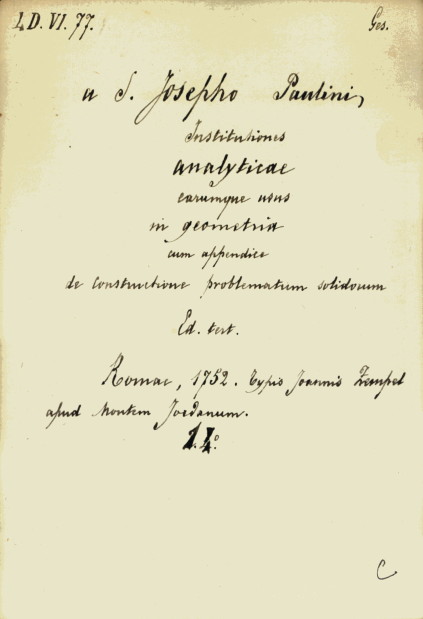 I, D. VI. 77. Ges.
a S. Josepho Paulini,
Institutiones
analyticae
earumque usus
in geometria
cum appendice
de constructione problematum solidorum
Ed. tert.
Romae, 1752. Typis Joannis Zempel
apud Montem Jordanum.
4°
C